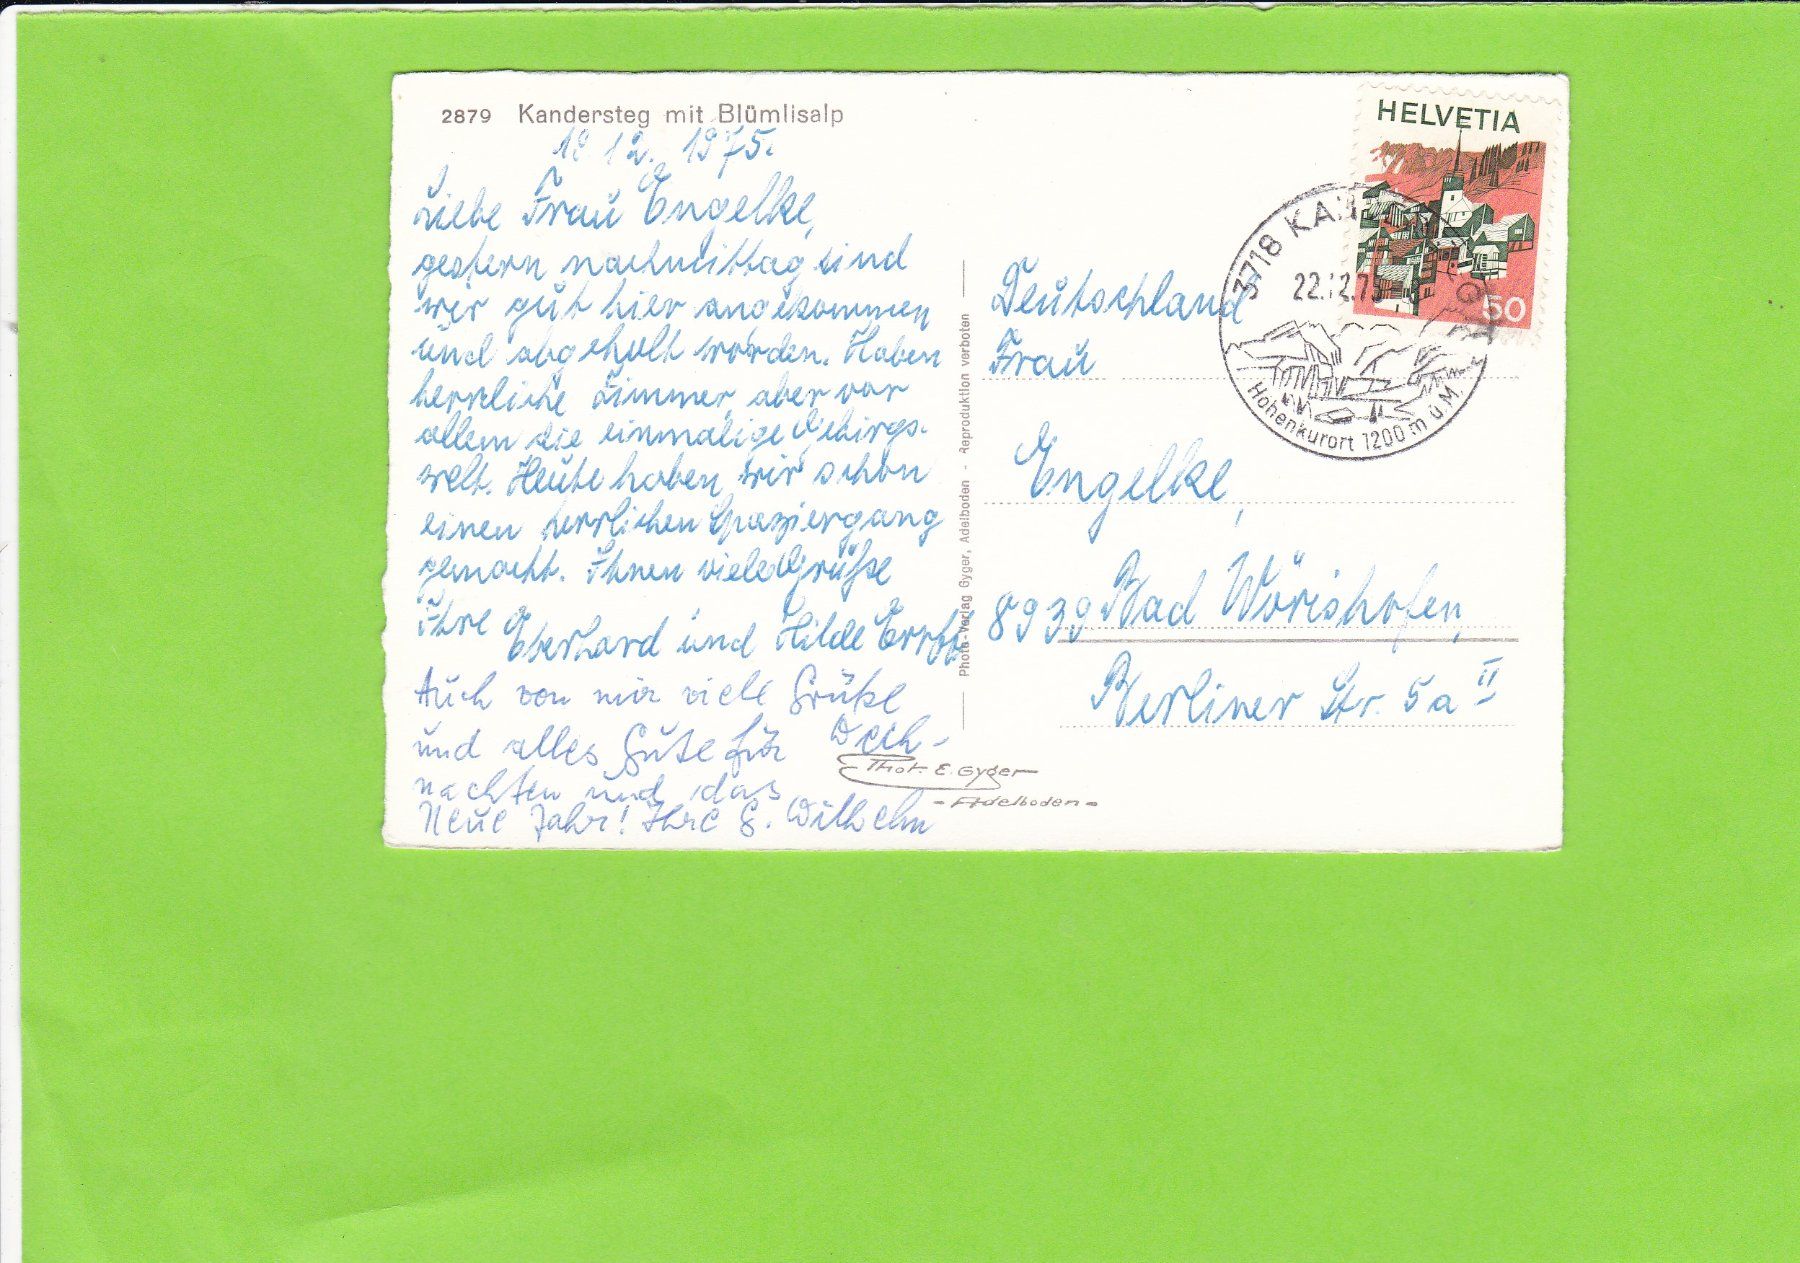 2879 Kandersteg mit Blümlisalp
12. 1975.
Liebe Frau Engelke,
gestern nachmittag sind
wir gut hier angekommen
und abgeholt worden. Haben
herrliche Zimmer, aber vor
allem die einmalige Gebirgs-
welt. Heute haben wir schon
einen herrlichen Spaziergang
gemacht. Ihnen viele Grüße
Ihre Eberhard und Hilde
Auch von mir viele Grüße
und alles Gute für Weih-
nachten und das
Neue Jahr! Ihre G. Wilhelm
Photo-Verlag Gyger, Adelboden - Reproduktion verboten
Phot. E. Gyger
- Adelboden -
HELVETIA
50
3718 KANDERSTEG
22.12.75
Höhenkurort 1200 m ü. M.
Deutschland
Frau
Engelke,
8939 Bad Wörishofen,
Berliner Str. 5a II